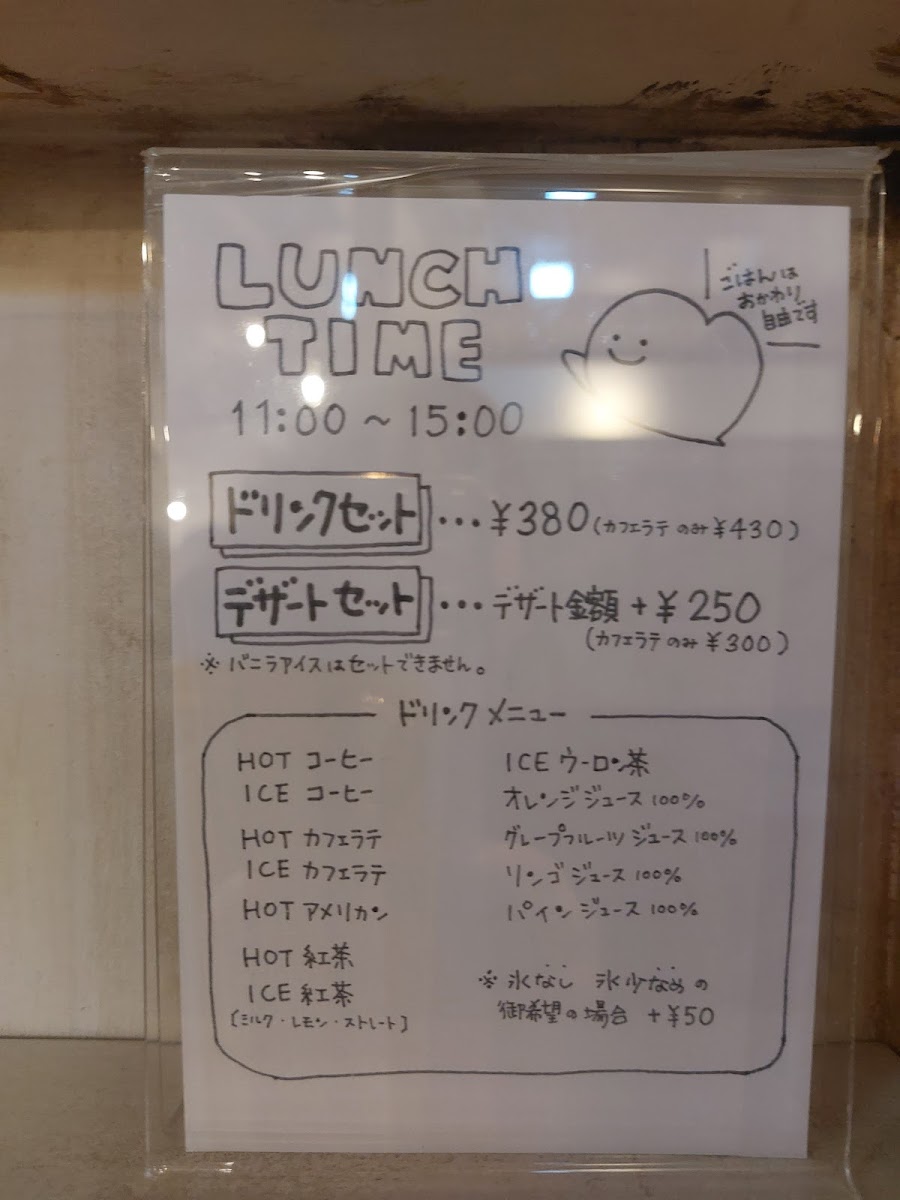 LUNCH
TIME
11:00 ~ 15:00
ごはんは
おかわり
自由です
ドリンクセット ・・・ ¥380 (カフェラテのみ ¥430)
デザートセット ・・・ デザート金額 + ¥250
(カフェラテのみ ¥300)
※ バニラアイスはセットできません。
ドリンクメニュー
HOT コーヒー
ICE コーヒー
HOT カフェラテ
ICE カフェラテ
HOT アメリカン
HOT 紅茶
ICE 紅茶
[ミルク・レモン・ストレート]
ICE ウーロン茶
オレンジジュース 100%
グレープフルーツジュース 100%
リンゴジュース 100%
パインジュース 100%
※ 氷なし 氷少なめの
御希望の場合 +¥50